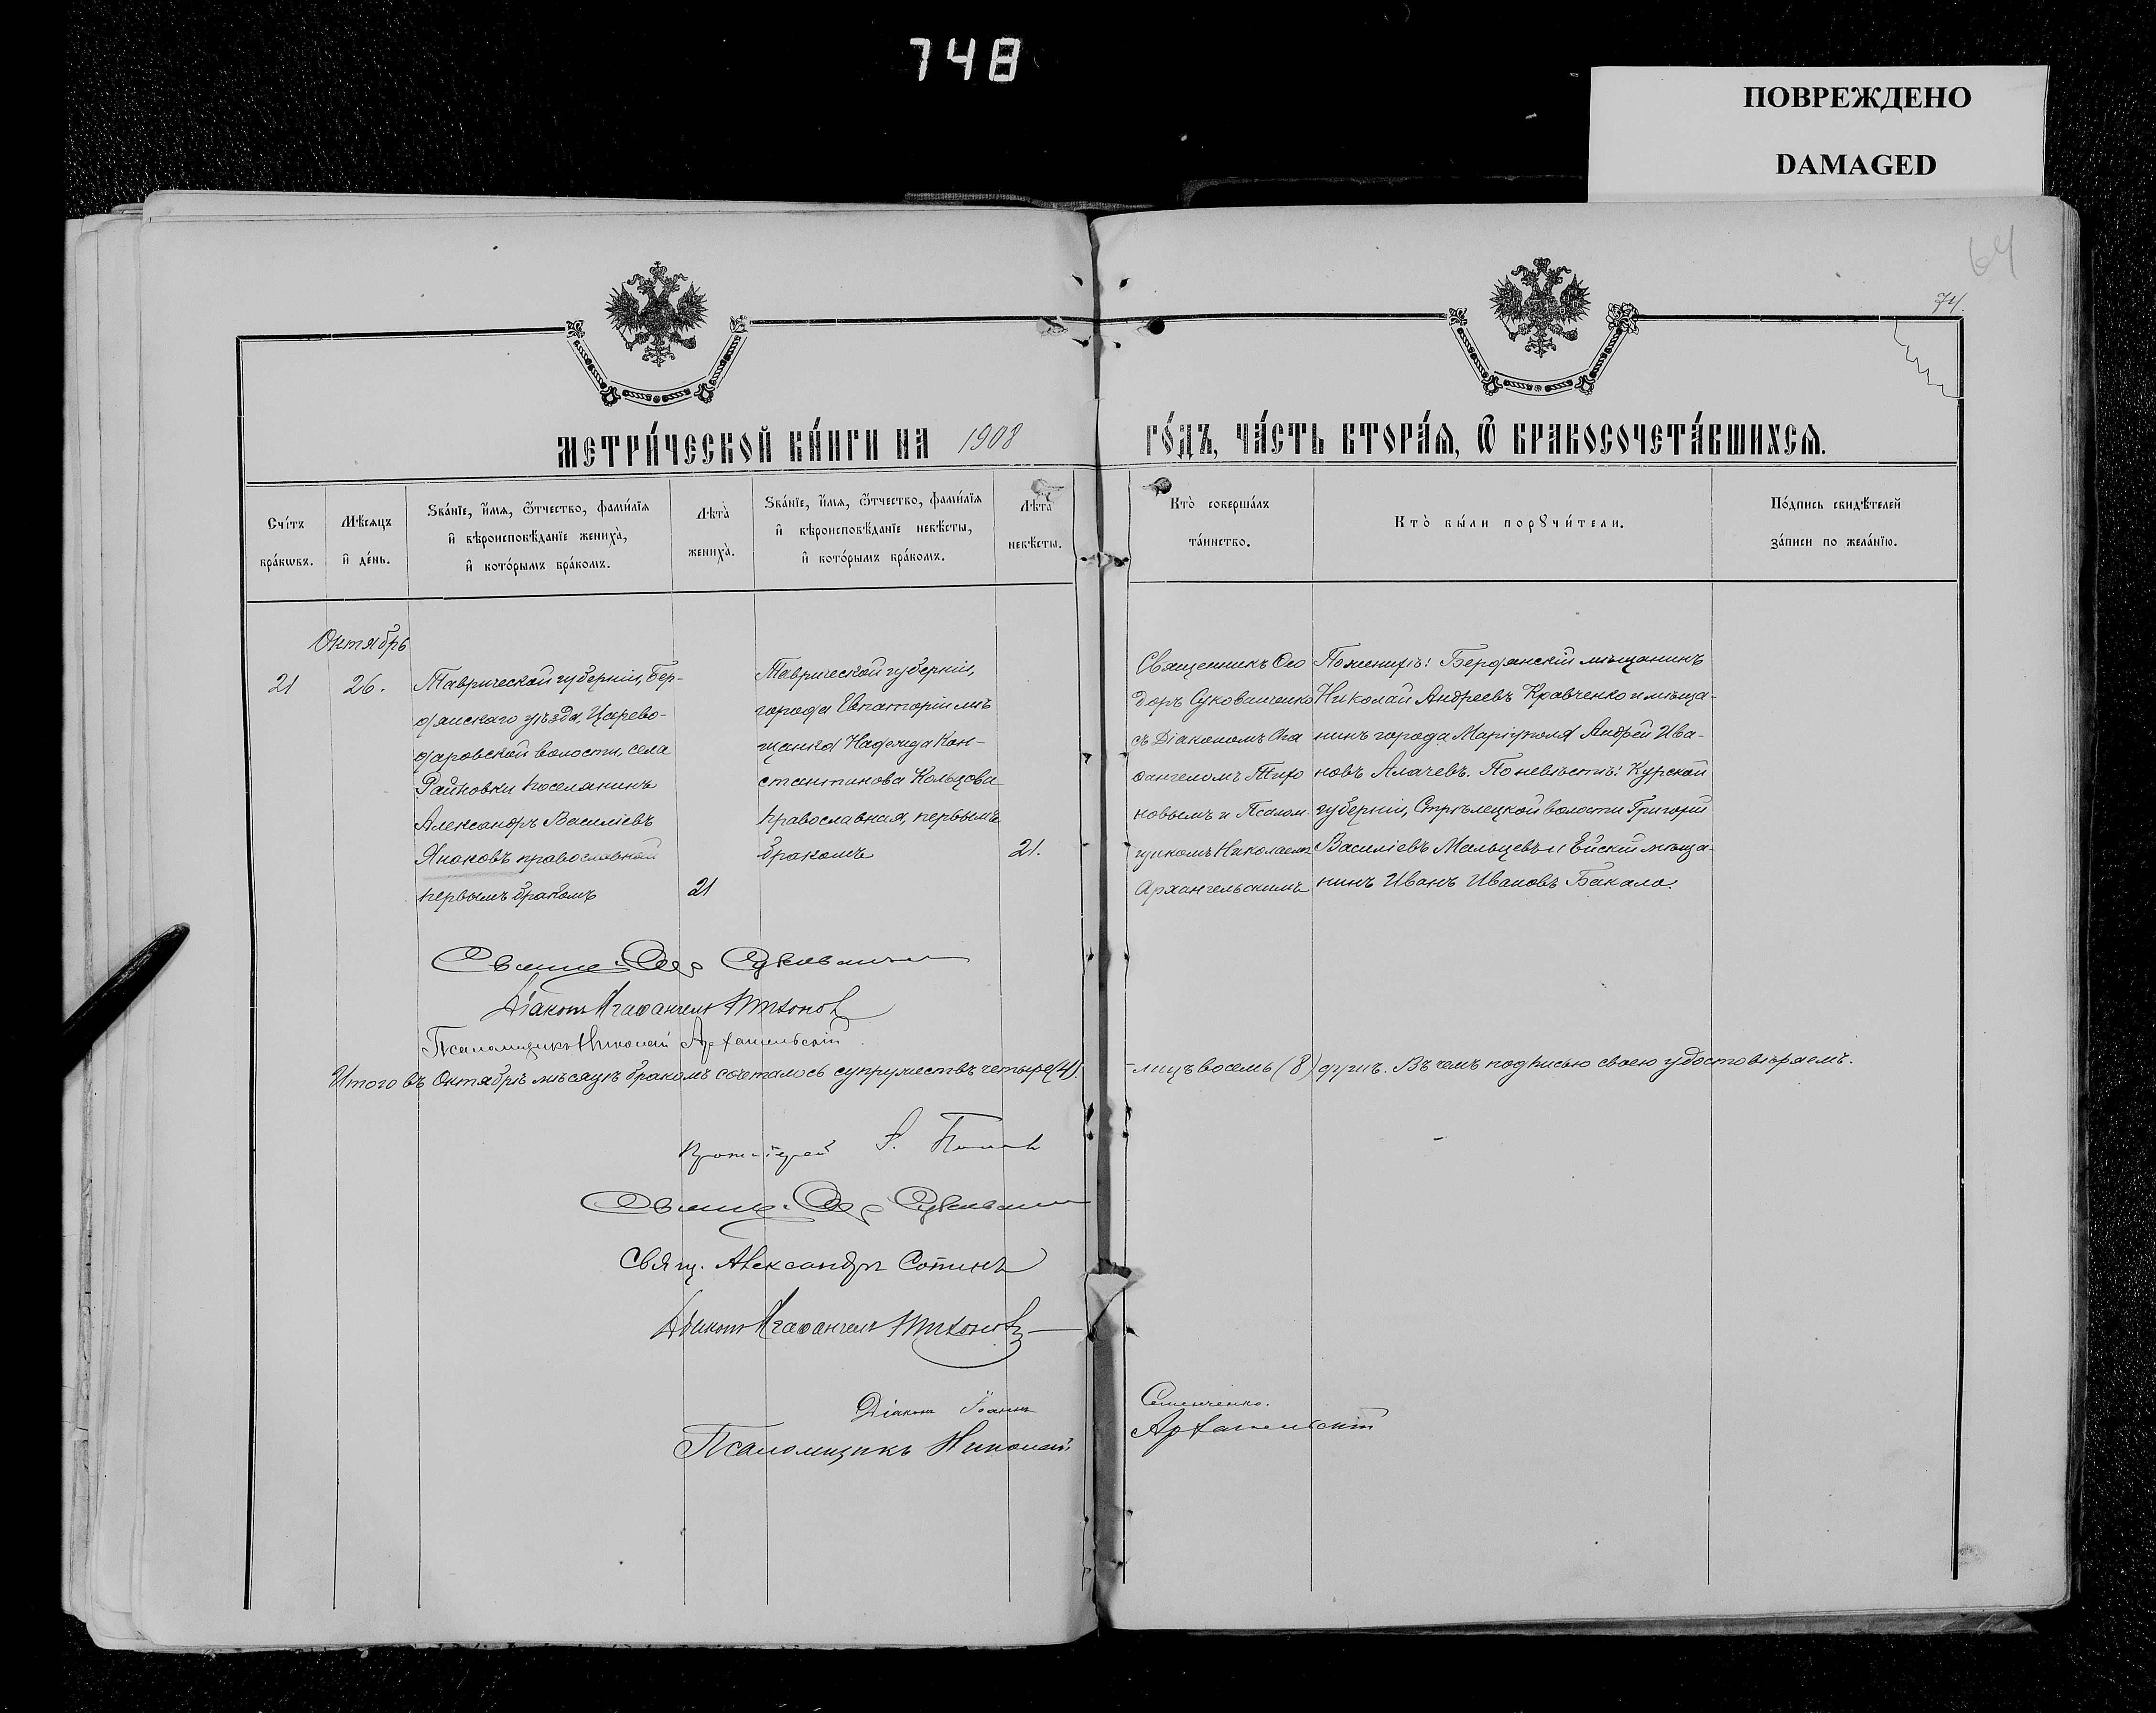 748
ПОВРЕЖДЕНО
DAMAGED
64
74.
МЕТРИ́ЧЕСКОЙ КНИ́ГИ НА 1908 ГО́ДЪ, ЧА́СТЬ ВТОРА́Я, Ѿ БРАКОСОЧЕТА́ВШИХСЯ.
Сче́тъ
бра́кѡвъ.
Мѣ́сяцъ
и҆ де́нь.
Ѕва́нїе, и҆́мя, ѻ҆́тчество, фами́лїя
и҆ вѣроисповѣ́данїе жениха̀,
и҆ кото́рымъ бра́комъ.
Лѣта̀
жениха̀.
Ѕва́нїе, и҆́мя, ѻ҆́тчество, фами́лїя
и҆ вѣроисповѣ́данїе невѣ́сты,
и҆ кото́рымъ бра́комъ.
Лѣта̀
невѣ́сты.
Кто̀ соверша́лъ
та́инство.
Кто̀ бы́ли порꙋчи́тели.
По́дпись свидѣ́телей
за́писи по жела́нїю.
Октябрь
21
26.
Таврической губерніи, Бер-
дянскаго уѣзда, Царево-
даровской волости, села
Райновки поселянинъ
Александръ Василіевъ
Янаковъ православной
первымъ бракомъ
21
Таврической губерніи,
города Евпаторіи мѣ
щанка Надежда Кон-
стантинова Кольцова
православная, первымъ
бракомъ
21.
Священникъ Ѳео
доръ Суковаченко
съ Діакономъ Ага
ѳангеломъ Тихо
новымъ и Псалом
щикомъ Николаемъ
Архангельскимъ
По женихѣ: Бердянскій мѣщанинъ
Николай Андреевъ Кравченко и мѣща-
нинъ города Маріуполя Андрей Ива-
новъ Алачевъ. По невѣстѣ: Курской
губерніи, Стрѣлецкой волости Григорій
Василіевъ Мальцевъ и Ейскій мѣща-
нинъ Иванъ Ивановъ Бакало.
Діаконъ Агаѳангелъ Тихоновъ
Псаломщикъ Николай Архангельскій.
Итого въ Октябрѣ мѣсяцѣ бракомъ сочеталось супружествъ четыре (4). -лицъ восемь (8) душъ. Въ чемъ подписью своею удостовѣряемъ.
Протоіерей
Свящ. Александръ Сопинъ
Діаконъ Агаѳангелъ Тихоновъ
Діаконъ Іоаннъ Семенченко.
Псаломщикъ Николай Архангельскій